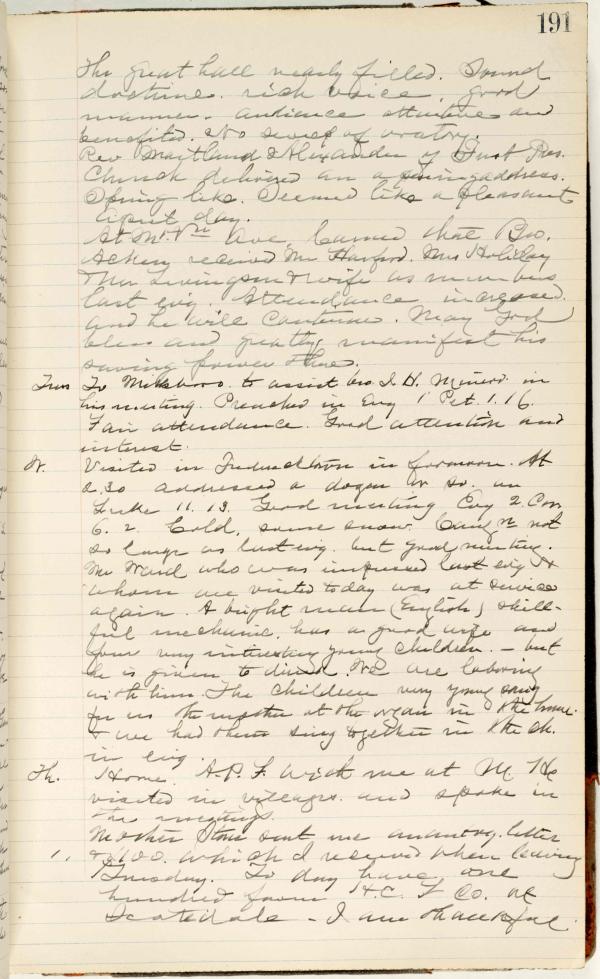 191
The great hall nearly filled. Sound
doctrine. rich voice, good
manner. audience attentive and
benefited. No sweep of oratory.
Rev Maitland Alexander of First Pres.
Church delivered an opening address.
Spring like. Seemed like a pleasant
April day.
At Mt. Ave. learned that Bro.
received Mr Mrs Holiday
& Mr Livingson & wife as members
last evg. Attendance increased.
and he will continue. May God
bless and greatly manifest his
saving power there.
Tues To Millsboro. to assist bro J. H. in
his meeting. Preached in Evg 1 Pet. 1.16.
Fair attendance. Good attention and
interest.
W. Visited in Fredericktown in forenoon. At
2.30 addressed a dozen or so. on
Luke 11.13. Good meeting Evg 2. Cor.
6.2. Cold, some snow. Cong'n not
so large as last evg. but good meeting.
Mr Ward who was impressed last evg &
whom we visited today was at service
again. A bright man (English) skill-
ful mechanic. has a good wife and
four very interesting young children. - but
he is given to drink. We are laboring
with him. The children very young sang
for us the mother at the organ in the house.
& we had them sing together in the ch.
in evg.
Th. Home. A.P.F. with me at M. He
visited in villages. and spoke in
the meetings.
Mother Stone sent me an letter
& 100. which I received when leaving
Tuesday. To day have one
hundred from H.C. F Co. at
Scottdale - I am thankful.